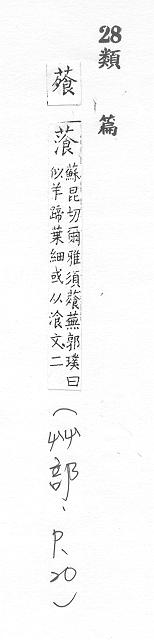 28類篇
蕵 䔚 蘇昆切爾雅須蕵蕪郭璞曰
似羊蹄葉細或从飡文二
(艸部、P.20)